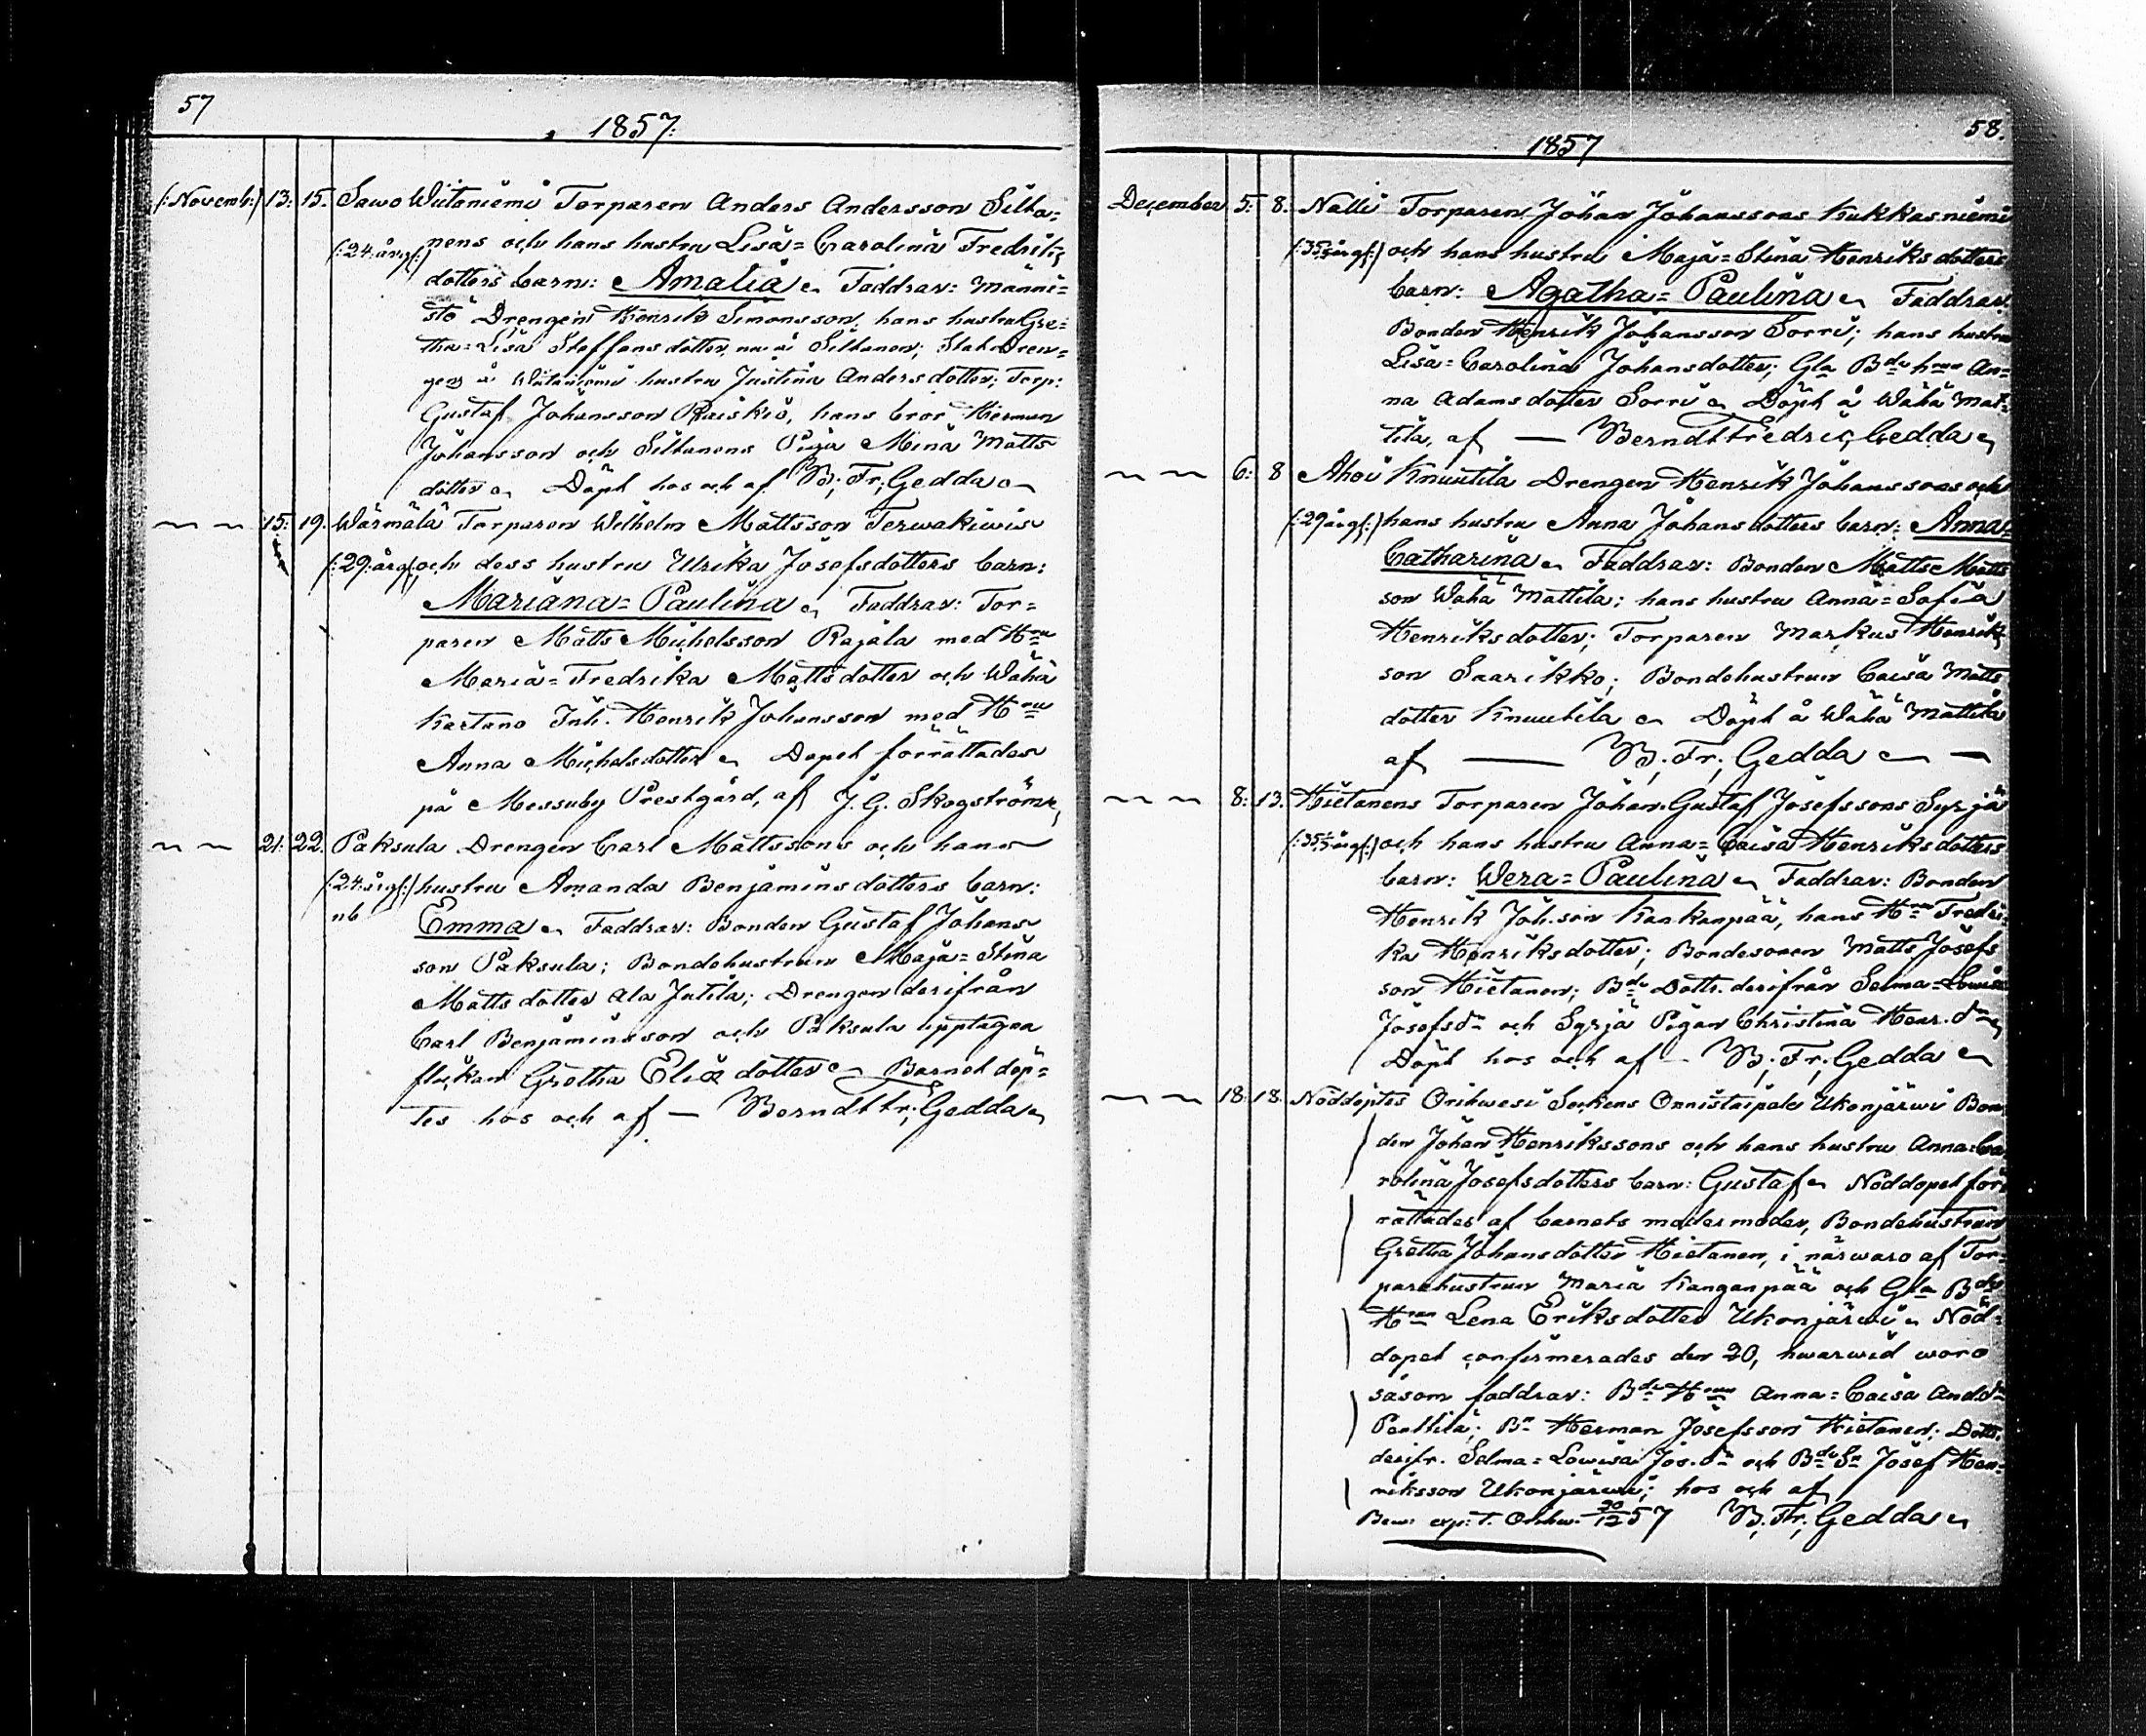 57
1857.
(:Novemb:) 13: 15. Sawo Wiitaniemi Torparen Anders Andersson Silta=
(:24 årig:) nens och hans hustru Lisa=Carolina Fredriks
dotters barn: Amalia. Faddrar: Männi=
stö Drengen Henrik Simonsson, hans hustru Gre=
tha=Lisa Staffansdotter, Siltanen; Stat Dren=
gens å Wiitaniemi hustru Justina Andersdotter; Torp:
Gustaf Johansson Raiskiö, hans bror Herman
Johansson och Siltanens Piga Mina Matts
dotter. Döpt hos och af B; Fr; Gedda
15: 19. Wärmälä Torparen Wilhelm Mattsson Terwakiwis
(:29 årig:) och dess hustru Ulrika Josefsdotters barn:
Mariana=Paulina. Faddrar: Tor=
paren Matts Michelsson Rajala med Hru
Maria=Fredrika Mattsdotter och Wähä
Kartano Inh. Henrik Johansson med Hru
Anna Michelsdotter. Dopet förrättades
på Messuby Prestgård, af J. G. Skogström
21: 22. Paksula Drengen Carl Mattssons och hans
(:24 årig:) hustru Amanda Benjaminsdotters barn:
nb Emma. Faddrar: Bonden Gustaf Johans
son Paksula; Bondehustrun Maja=Stina
Mattsdotter Ala Jutila; Drengen derifrån
Carl Benjaminsson och Paksula upptagna
flickan Gretha Eliædotter. Barnet döp=
tes hos och af — Berndt Fr; Gedda
58.
1857
December 5: 8. Nalli Torparen Johan Johanssons Kukkasniemi
(:35 årig:) och hans hustru Maja=Stina Henriksdotters
barn: Agatha=Paulina. Faddrar:
Bonden Henrik Johansson Sorri; hans hustru
Lisa=Carolina Johansdotter; Gla Bde hrun An=
na Adamsdotter Sorri. Döpt å Wähä Mat=
tila, af — Berndt Fredric Gedda
6: 8 Ahoi Knuutila Drengen Henrik Johanssons och
(:29 årig:) hans hustru Anna Johansdotters barn: Anna=
Catharina. Faddrar: Bonden Matts Matts
son Wähä Mattila; hans hustru Anna=Sofia
Henriksdotter; Torparen Markus Henriks
son Saarikko; Bondehustrun Caisa Matts
dotter Knuutila. Döpt å Wähä Mattila
af — B; Fr; Gedda —
8: 13. Hietanens Torparen Johan Gustaf Josefssons Syrjä
(:35 årig:) och hans hustru Anna=Caisa Henriksdotters
barn: Wera=Paulina. Faddrar: Bonden
Henrik Joh.son Kankanpää, hans Hru Fredri=
ka Henriksdotter; Bondesonen Matts Josefs
son Hietanen; Bde Dottr. derifrån Selma=Lowisa
Josefsdr och Syrjä Pigan Christina Henr. dr
Döpt hos och af — B; Fr; Gedda
18: 18. Nöddöptes Orihwesi Sockens Onnistaipale Ukonjärwi Bon
den Johan Henrikssons och hans hustru Anna=Ca
rolina Josefsdotters barn: Gustaf. Nöddopet för=
rättades af barnets modermoder, Bondehustrun
Gretha Johansdotter Hietanen, i närwaro af Tor=
parehustrun Maria Kanganpää och Gla Bde
Hrun Lena Eriksdotter Ukonjärwi. Nöd=
dopet confirmerades den 20, hwarwid woro
såsom faddrar: Bde Hrun Anna=Caisa And.dr
Penttilä; Bn Herman Josefsson Hietanen; Dottr.
derifr. Selma=Lowisa Jos.dr och Bde Sn Josef Hen=
riksson Ukonjärwi; hos och af
Bew. exp. t. Orihw. 20/12 57 B; Fr; Gedda